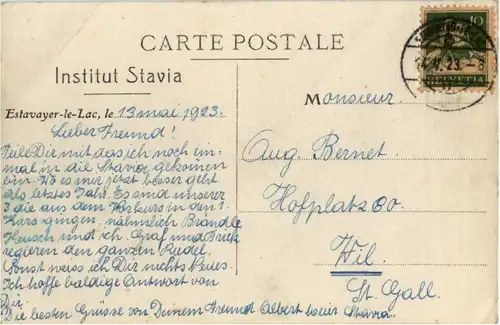 CARTE POSTALE
Institut Stavia
Estavayer-le-Lac, le 13 mai 1923.
Lieber Freund!
Teile Dir mit das ich noch ein-
mal in die Stavia gekomen
bin. Wo es mir jetzt besser geht
als letztes Jahr. Es sind unserer
3 die aus dem Vorkurs in den 1.
Kurs gingen, nähmlich Brändle
Heusch und ich. Graf und Frick
regieren den ganzen Rudel.
Sonst weiss ich Dir nichts Neues.
Ich hoffe baldige Antwort von
Dir.
Die besten Grüsse von Deinem Freund Albert Stavia.
10
HELVETIA
14.V.23.-8
Monsieur
Aug. Bernet.
Hofplatz 60.
Wil.
St. Gall.